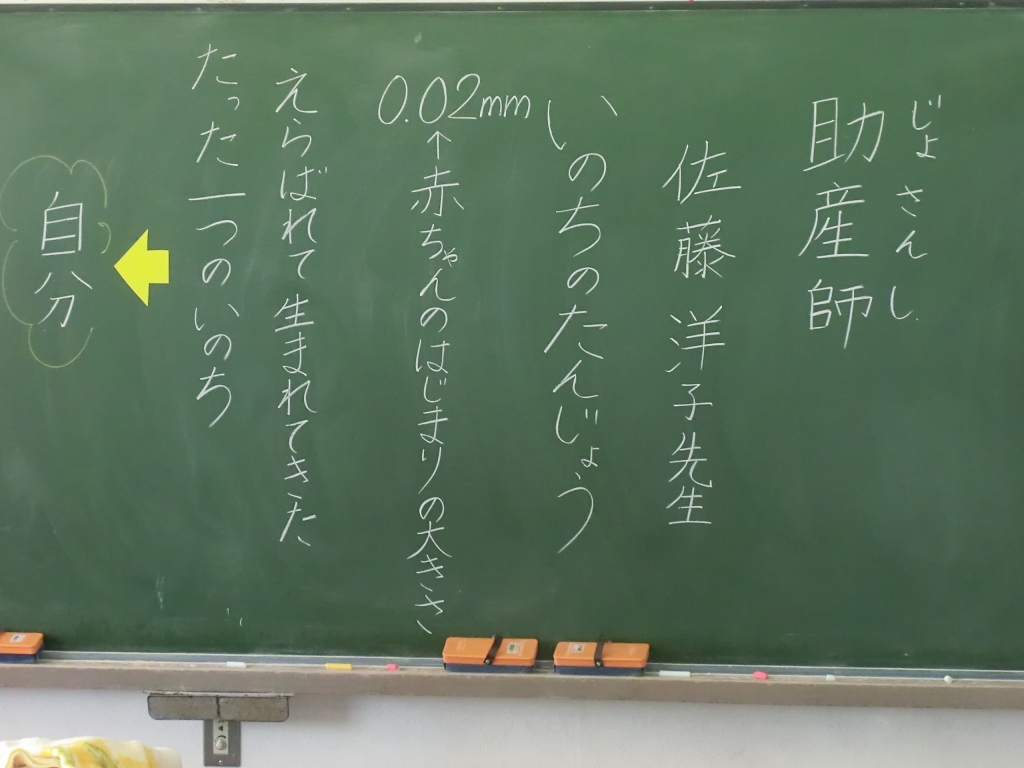 じょさんし
助産師
佐藤洋子先生
いのちのたんじょう
0.02mm
↑赤ちゃんのはじまりの大きさ
えらばれて生まれてきた
たった一つのいのち
自分